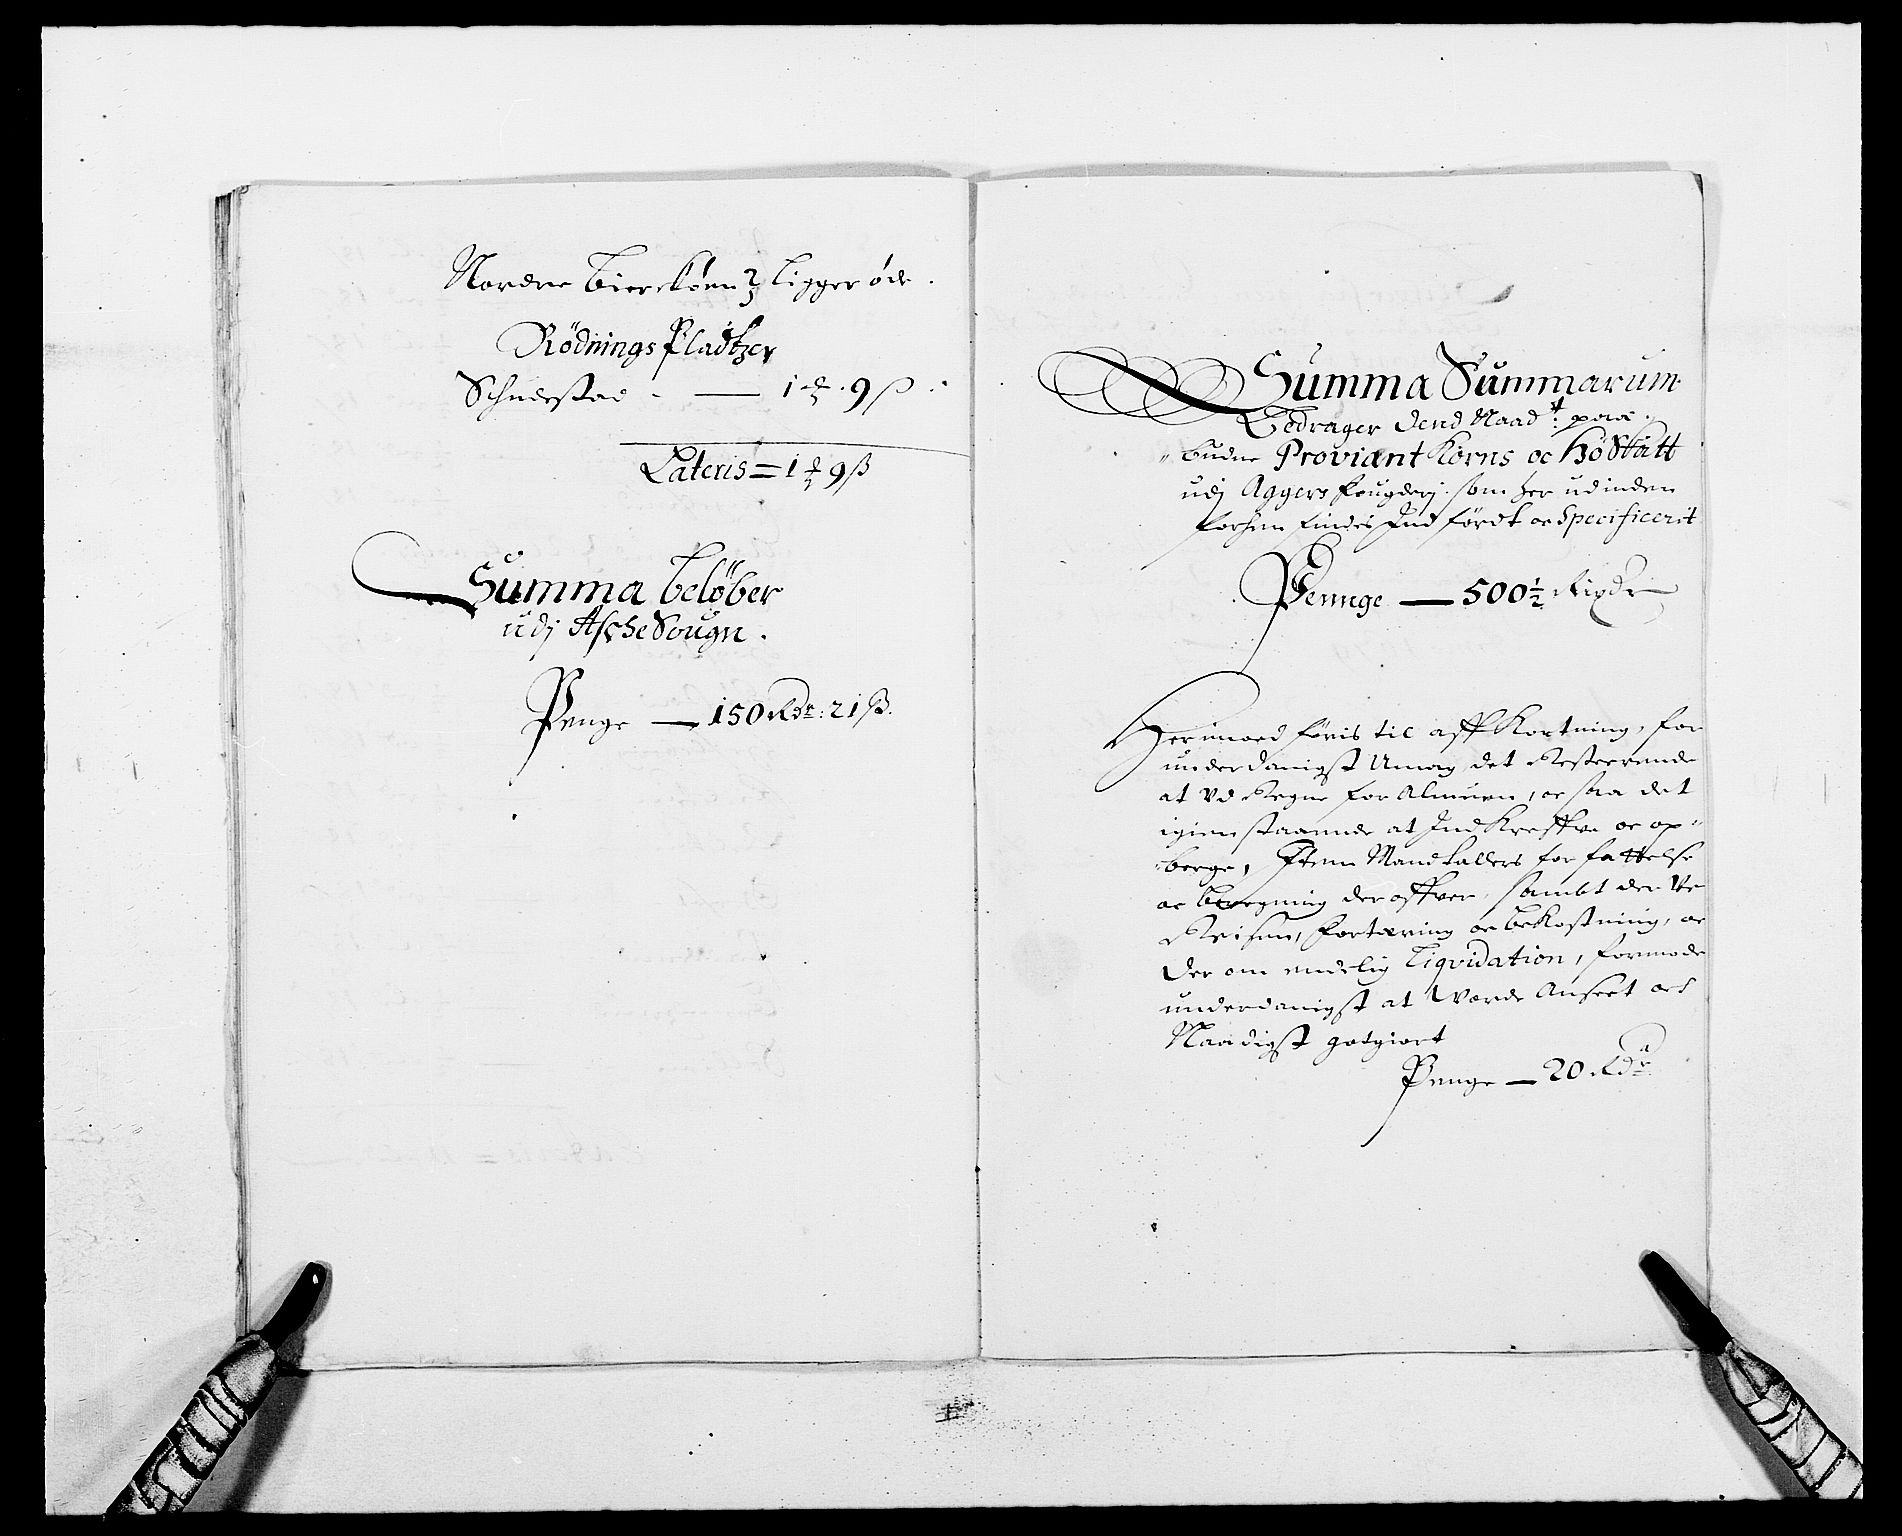 Nordre Bierckøen ligger øde.
Rödnings Pladtzer
Schudestad — 1 ₰ 9 ß
Lateris = 1 ₰ 9 ß
Summa belöber
udj Asche Sougn.
Penge — 150 Rdr: 21 ß.
Summa Summarum
Bedrager dend Naad:t paa
budne Proviant Korns oc Hö Skatt
udj Aggers fougderj som her udinden
forhen findes Ind fördt oc Specificerit
Pennge — 500 ½ Rixdr
Herimoed föris til aff Kortning, for
underdanigst Umag, det Resteerende
at Vd Regne for Almuen, oc saa det
igien staaende at Ind Kreffve oc op-
berge, Item Mandtallers for fattelse
oc beregning der offver, sambt der Ve
Reisen, fortæring oc beKostning, oc
der om endelig Liqvidation, formode
underdanigst at Worde Anseet oc
Naadigst gotgiort
Penge — 20 Rdr